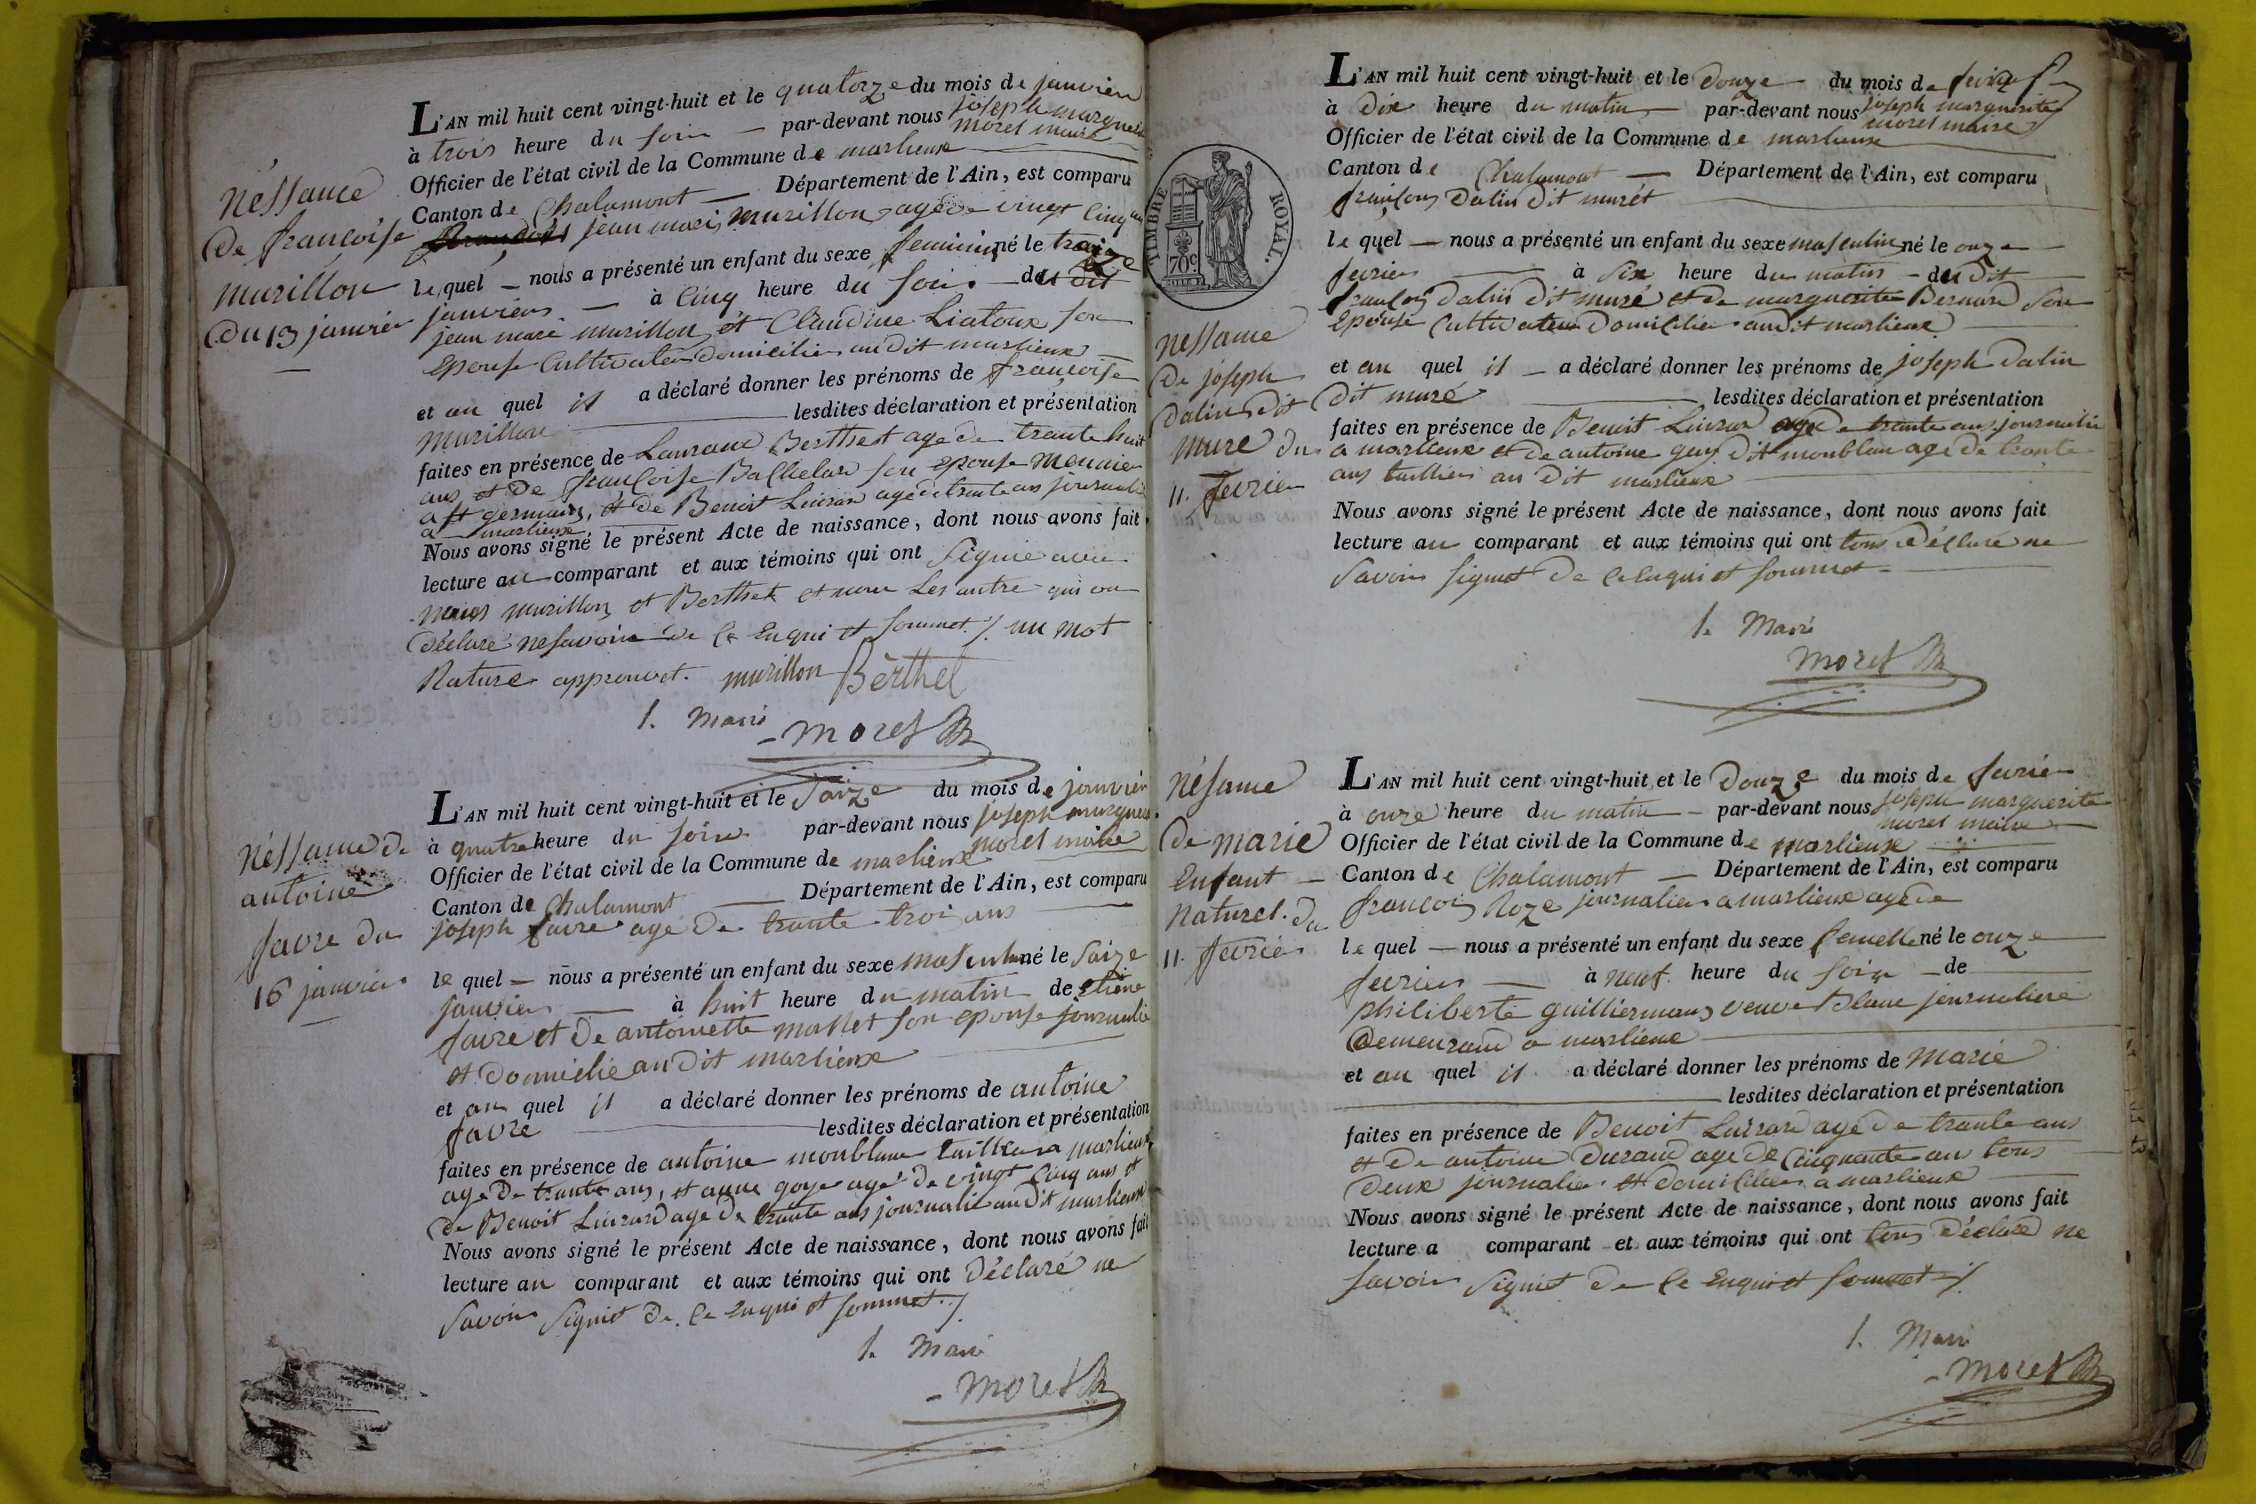 néssance
de françoise
murillon
du 13 janvier
L'AN mil huit cent vingt-huit et le quatorze du mois de janvier
à trois heure du soir par-devant nous joseph marguerite
moret maire
Officier de l'état civil de la Commune de marlieux
Canton de Chalamont Département de l'Ain, est comparu
jean mari murillon agé de vingt cinq ans
le quel nous a présenté un enfant du sexe feminin né le traize
janvier à cinq heure du soir du dit
jean marc murillon et Claudine Liatoux son
epouse Cultivateur domicilier au dit marlieux
et au quel il a déclaré donner les prénoms de françoise
murillon lesdites déclaration et présentation
faites en présence de Laurans Berthet agé de trante huit
ans et de françoise son epouse meunier
a st germain, et de Benoit Luizard agé de trante ans journalie
a marlieux
Nous avons signé le présent Acte de naissance, dont nous avons fait
lecture au comparant et aux témoins qui ont signié avec
nous murillon et Berthet et non Les autre qui on
déclaré ne savoir de ce Enqui et sommet ./. un mot
Rature approuvet. murillon Berthet
l. Maire
moret
néssance de
antoine
favre du
16 janvier
L'AN mil huit cent vingt-huit et le saize du mois de janvier
à quatre heure du soir par-devant nous joseph marguerite
moret maire
Officier de l'état civil de la Commune de marlieux
Canton de Chalamont Département de l'Ain, est comparu
joseph favre agé de trante trois ans
le quel nous a présenté un enfant du sexe masculin né le saize
janvier à huit heure du matin de etiene
favre et de antoinette mallet son epouse journalie
et domicilié au dit marlieux
et au quel il a déclaré donner les prénoms de antoine
favre lesdites déclaration et présentation
faites en présence de antoine monblanc taillieur a marlieux
agé de trante ans, et anne goye agé de vingt cinq ans et
de Benoit Luizard agé de trante ans journalie au dit marlieux
Nous avons signé le présent Acte de naissance, dont nous avons fait
lecture au comparant et aux témoins qui ont déclaré ne
savoir signiet de ce Enqui et sommet ./.
l. Maire
moret
TIMBRE ROYAL.
70c
nessance
de joseph
dalin dit
mure du
11. fevrier
L'AN mil huit cent vingt-huit et le douze du mois de fevrier
à dix heure du matin par-devant nous joseph marguerite
moret maire
Officier de l'état civil de la Commune de marlieux
Canton de Chalamont Département de l'Ain, est comparu
françois dalin dit murét
le quel nous a présenté un enfant du sexe masculin né le onze
fevrier à six heure du matin du dit
françois dalin dit muré et de marguerite Bernard son
Epouse Cultivateur domicilier au dit marlieux
et au quel il a déclaré donner les prénoms de joseph dalin
dit muré lesdites déclaration et présentation
faites en présence de Benoit Luizard agé de trante ans journalie
a marlieux et de antoine guy dit monblan agé de trante
ans taillier au dit marlieux
Nous avons signé le présent Acte de naissance, dont nous avons fait
lecture au comparant et aux témoins qui ont tous déclaré ne
savoir signiet de ce Enqui et sommet
l. Maire
moret
nésance
de marie
Enfant
naturel. du
11. fevrier
L'AN mil huit cent vingt-huit et le douze du mois de fevrier
à onze heure du matin par-devant nous joseph marguerite
moret maire
Officier de l'état civil de la Commune de marlieux
Canton de Chalamont Département de l'Ain, est comparu
françois Roze journalier a marlieux agé de
le quel nous a présenté un enfant du sexe femelle né le onze
fevrier à neuf heure du soir de
philiberte guilliermans veuve Blanc journaliere
demeurand a marlieux
et au quel il a déclaré donner les prénoms de marie
lesdites déclaration et présentation
faites en présence de Benoit Luizard agé de trante ans
et de antoine durand agé de Cinquante ans tous
deux journalier et domicilier a marlieux
Nous avons signé le présent Acte de naissance, dont nous avons fait
lecture a comparant et aux témoins qui ont tous déclaré ne
savoir signiet de ce Enqui et sommet ./.
l. Maire
moret